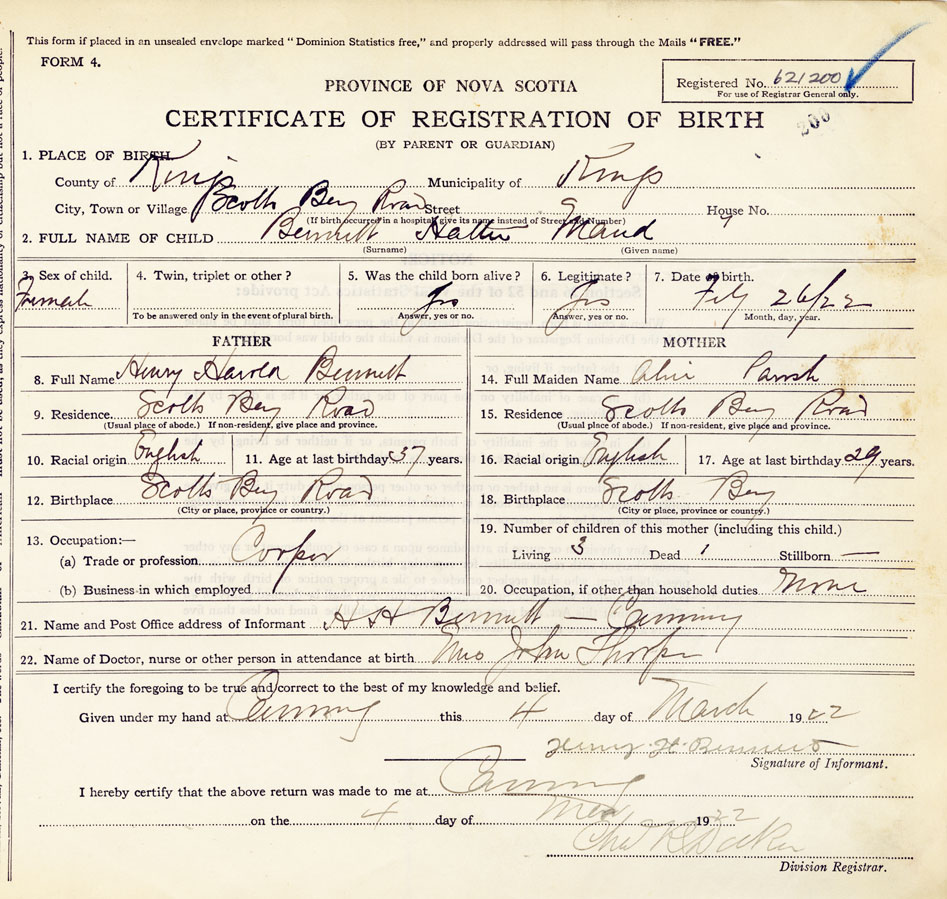 This form if placed in an unsealed envelope marked "Dominion Statistics free," and properly addressed will pass through the Mails "FREE."
FORM 4.
Registered No. 621200
For use of Registrar General only.
PROVINCE OF NOVA SCOTIA
200
CERTIFICATE OF REGISTRATION OF BIRTH
(BY PARENT OR GUARDIAN)
1. PLACE OF BIRTH
County of Kings Municipality of Kings
City, Town or Village Scotts Bay Road Street House No.
(If birth occurred in a hospital give its name instead of Street and Number)
2. FULL NAME OF CHILD Bennett Hattie Maud
(Surname) (Given name)
3. Sex of child. 4. Twin, triplet or other? 5. Was the child born alive? 6. Legitimate? 7. Date of birth.
Female Yes Yes Feby 26/22
To be answered only in the event of plural birth. Answer, yes or no. Answer, yes or no. Month, day, year.
FATHER MOTHER
8. Full Name Henry Harold Bennett 14. Full Maiden Name Alice Parrsh
9. Residence Scotts Bay Road 15. Residence Scotts Bay Road
(Usual place of abode.) If non-resident, give place and province. (Usual place of abode.) If non-resident, give place and province.
10. Racial origin English 11. Age at last birthday 37 years. 16. Racial origin English 17. Age at last birthday 29 years.
12. Birthplace Scotts Bay Road 18. Birthplace Scotts Bay
(City or place, province or country.) (City or place, province or country.)
13. Occupation:— 19. Number of children of this mother (including this child.)
(a) Trade or profession Cooper Living 3 Dead 1 Stillborn —
(b) Business in which employed 20. Occupation, if other than household duties None
21. Name and Post Office address of Informant H H Bennett — Canning
22. Name of Doctor, nurse or other person in attendance at birth Mrs John Thorpe
I certify the foregoing to be true and correct to the best of my knowledge and belief.
Given under my hand at Canning this 4 day of March 1922
Henry H. Bennett
Signature of Informant.
I hereby certify that the above return was made to me at Canning
on the 4 day of Mch 1922
Division Registrar.